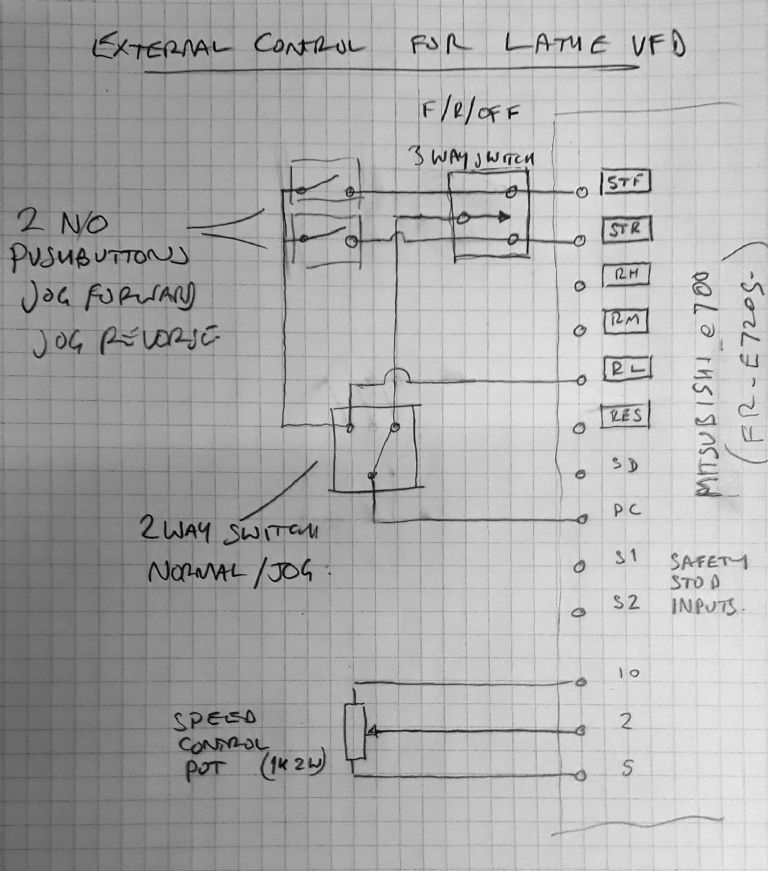 EXTERNAL CONTROL FOR LATHE VFD
F/R/OFF
3 WAY SWITCH
2 N/O
PUSHBUTTONS
JOG FORWARD
JOG REVERSE
STF
STR
RH
RM
RL
RES
SD
PC
S1
S2
SAFETY
STOP
INPUTS.
MITSUBISHI e700
(FR-E720S-
2 WAY SWITCH
NORMAL/JOG.
10
2
5
SPEED
CONTROL
POT (1K 2W)